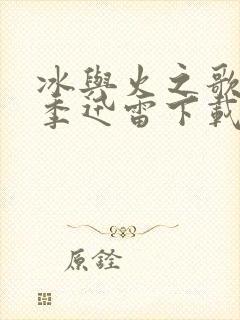 冰與火之歌
季迅雷下載
原銓